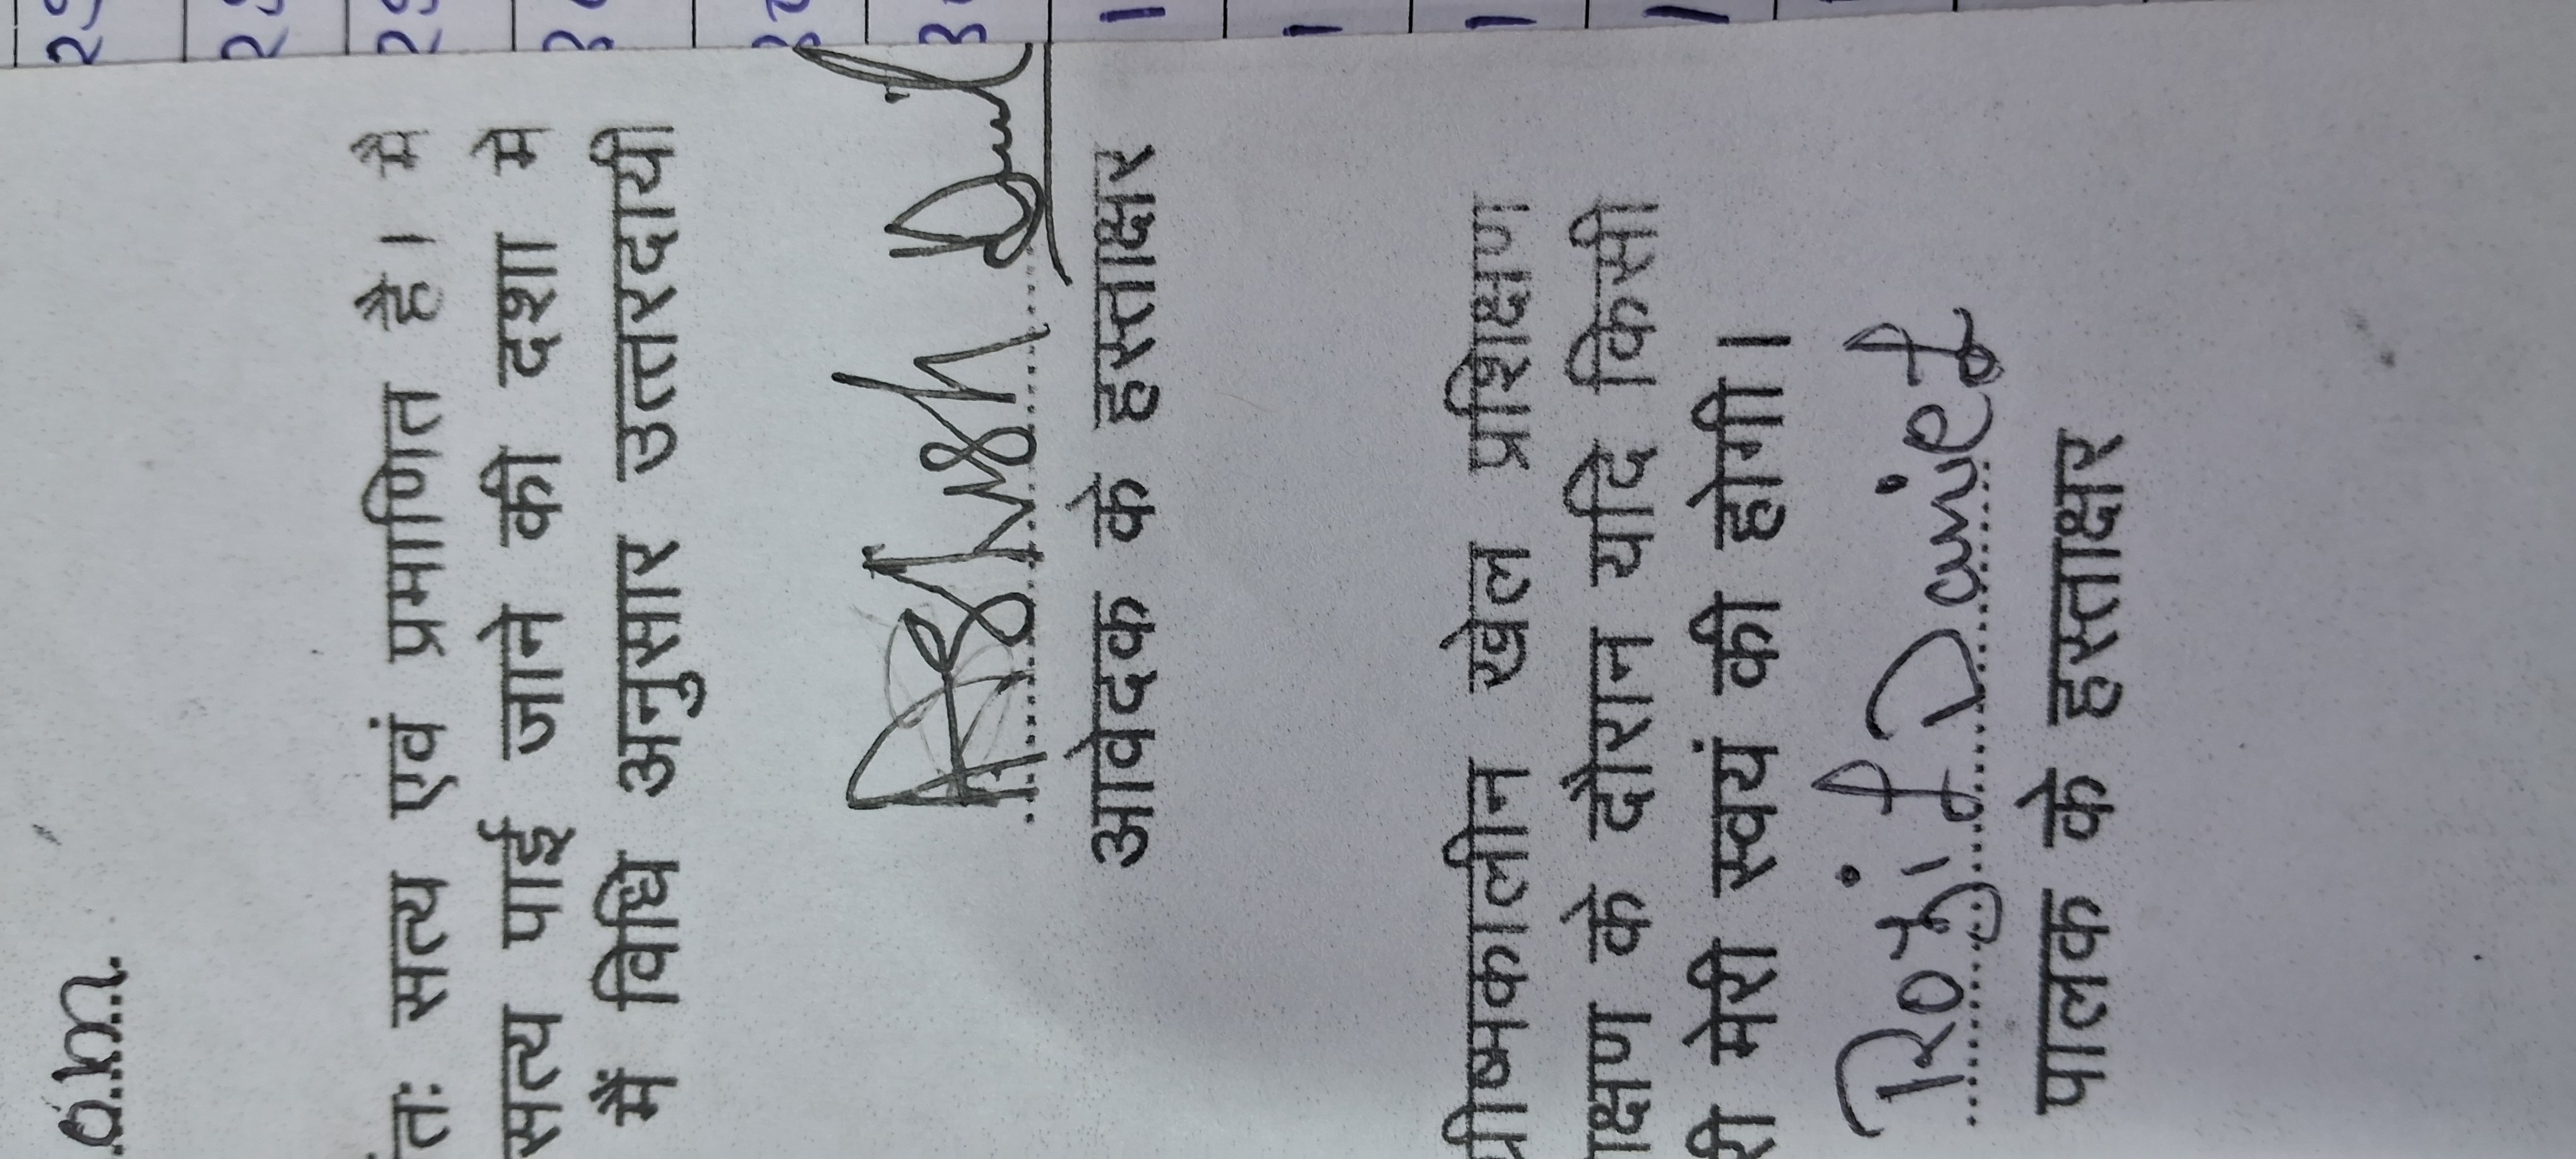 a.m.
तः सत्य एवं प्रमाणित है। मैं
सत्य पाई जाने की दशा में
में विधि अनुसार उत्तरदायी
आवेदक के हस्ताक्षर
ग्रीष्मकालीन खेल प्रशिक्षण
क्षण के दौरान यदि किसी
री मेरी स्वयं की होगी।
Rojil Daniel
पालक के हस्ताक्षर